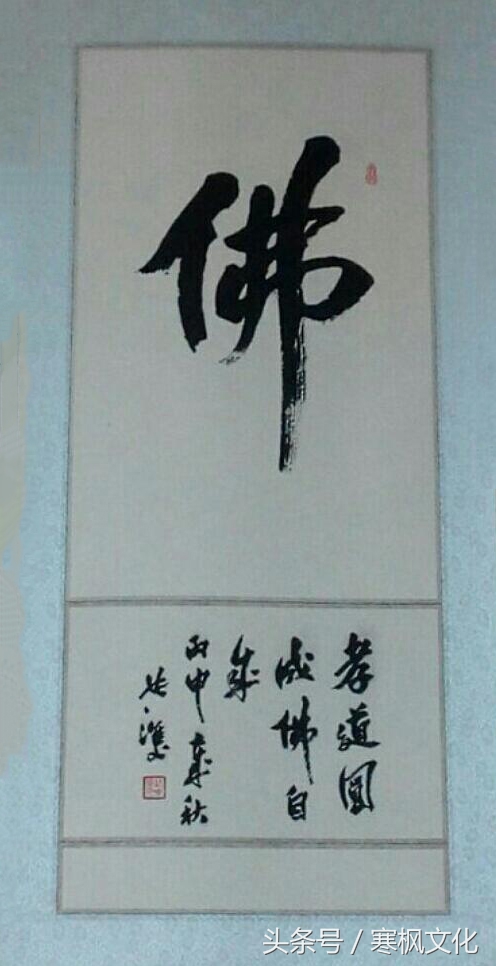 佛
孝道圓
成佛自
成
丙申歲秋
头条号 / 寒枫文化